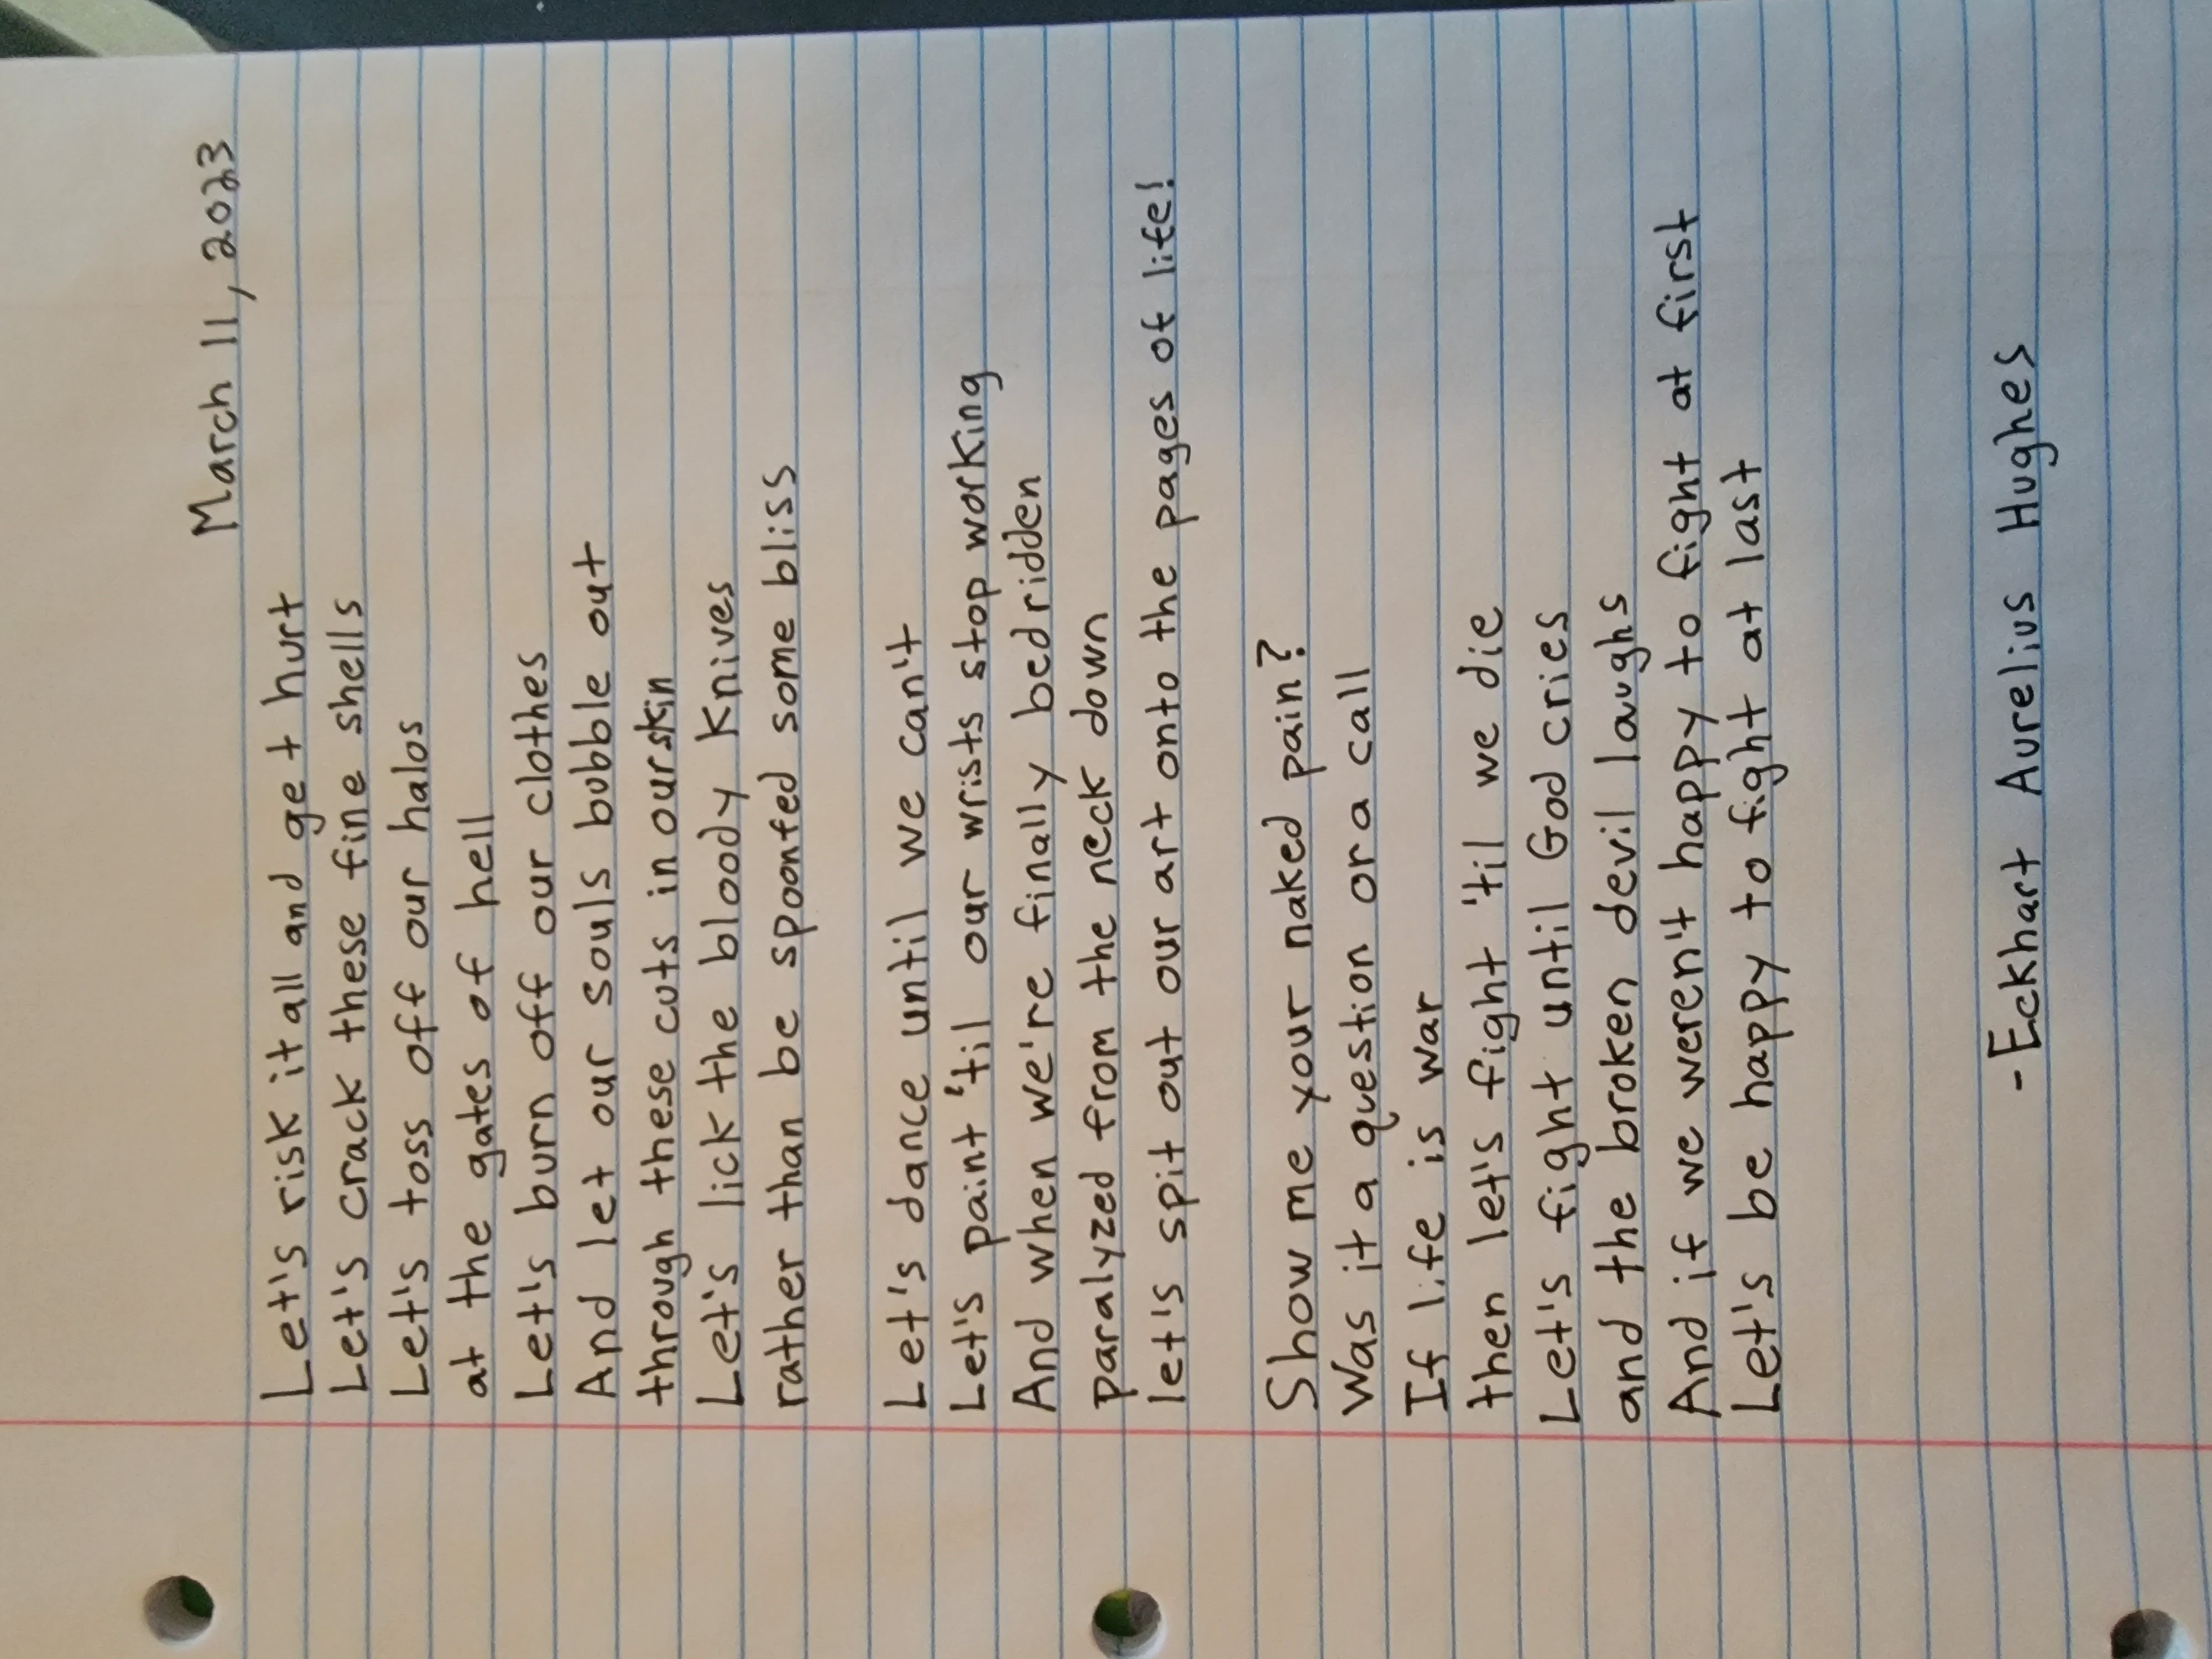 March 11, 2023
Let's risk it all and get hurt
Let's crack these fine shells
Let's toss off our halos
at the gates of hell
Let's burn off our clothes
And let our souls bubble out
through these cuts in our skin
Let's lick the bloody knives
rather than be spoonfed some bliss
Let's dance until we can't
Let's paint 'til our wrists stop working
And when we're finally bedridden
paralyzed from the neck down
let's spit out our art onto the pages of life!
Show me your naked pain?
Was it a question or a call
If life is war
then let's fight 'til we die
Let's fight until God cries
and the broken devil laughs
And if we weren't happy to fight at first
Let's be happy to fight at last
-Eckhart Aurelius Hughes